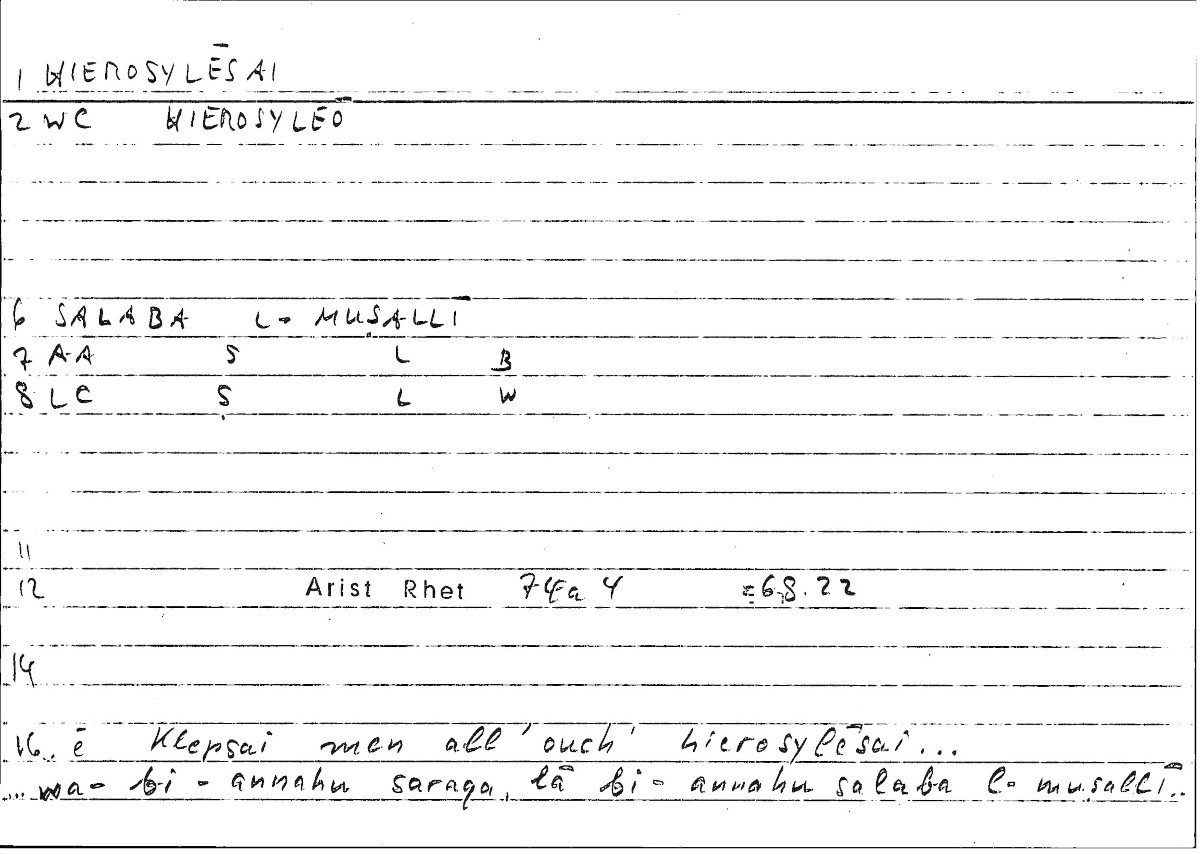 1 HIEROSYLĒSAI
2 WC HIEROSYLEŌ
6 SALABA L- MUṢALLĪ
7 AA S L B
8 LC Ṣ L W
11
12 Arist Rhet 74a 4 =68.22
14
16.. ē Klepsai men all' ouch' hierosylēsai...
... wa- bi- annahu saraqa, lā bi- annahu salaba l- muṣallī..